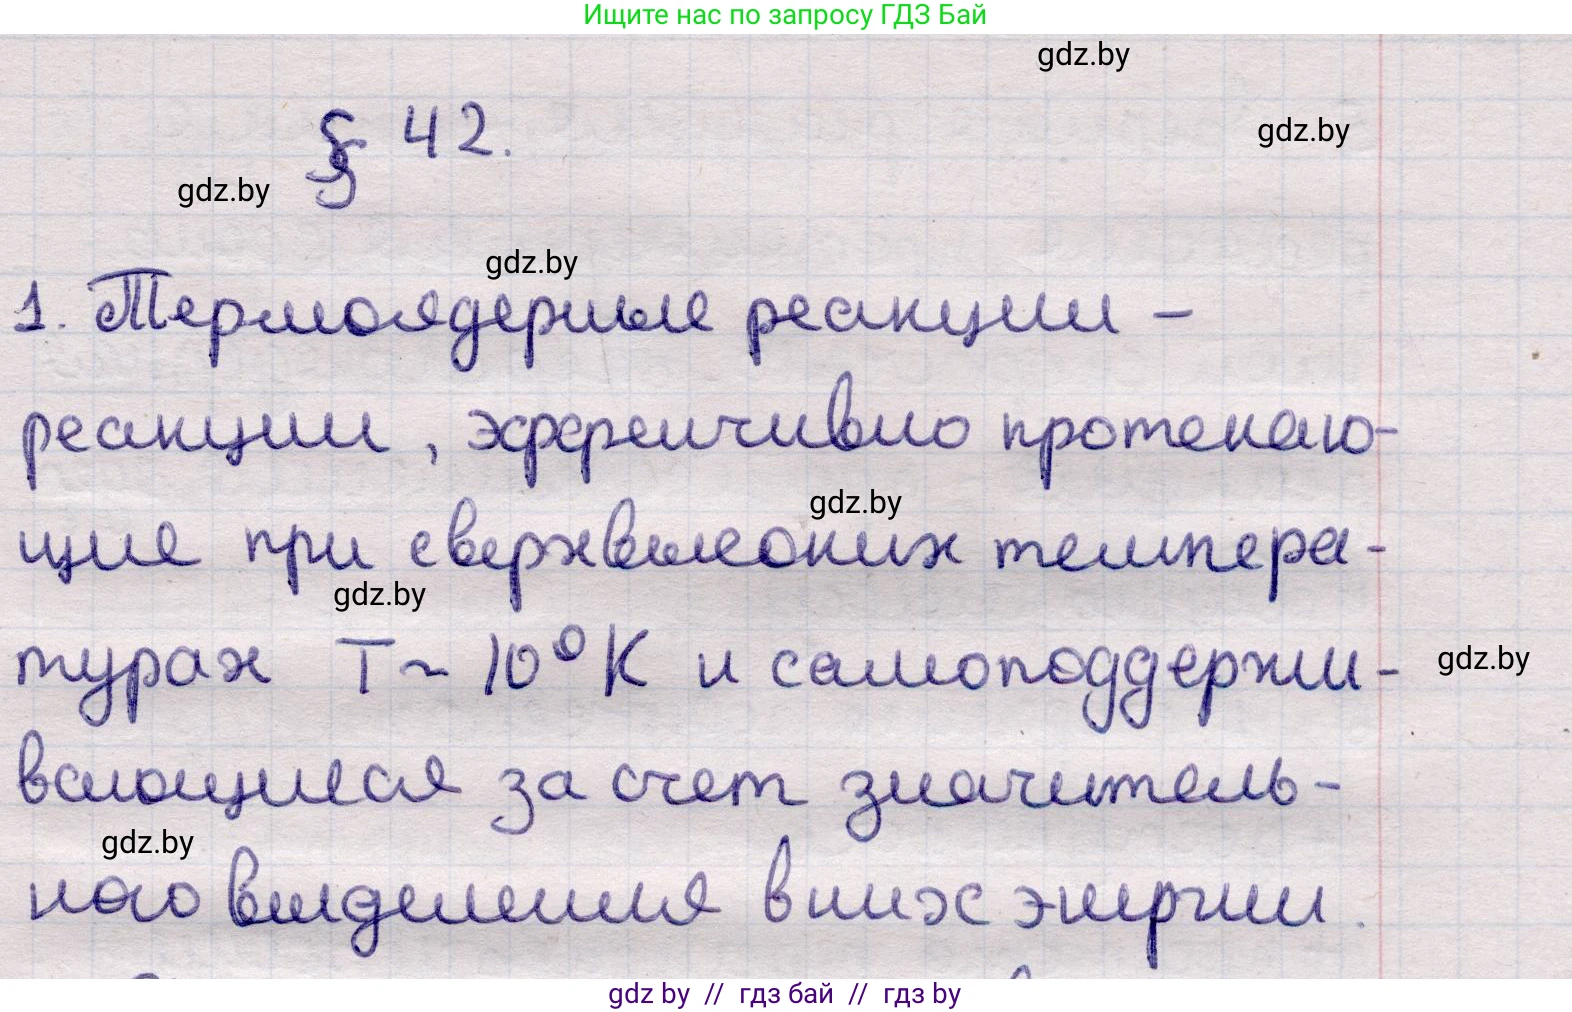 Ищите нас по запросу ГДЗ Бай
gdz.by
§ 42.
gdz.by
gdz.by
gdz.by
1. Термоядерные реакции –
реакции, эффективно протекаю-
gdz.by
щие при сверхвысоких темпера-
gdz.by
турах T ~ 10⁰ K и самоподдержи-
gdz.by
вающиеся за счет значитель-
gdz.by
ного выделения в них энергии.
gdz by // гдз бай // гдз by